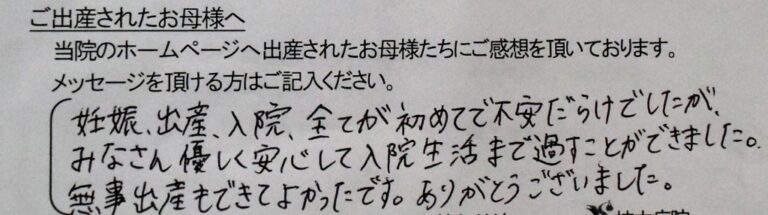 ご出産されたお母様へ
当院のホームページへ出産されたお母様たちにご感想を頂いております。
メッセージを頂ける方はご記入ください。
妊娠、出産、入院、全てが初めてで不安だらけでしたが、
みなさん優しく安心して入院生活まで過すことができました。
無事出産もできてよかったです。ありがとうございました。